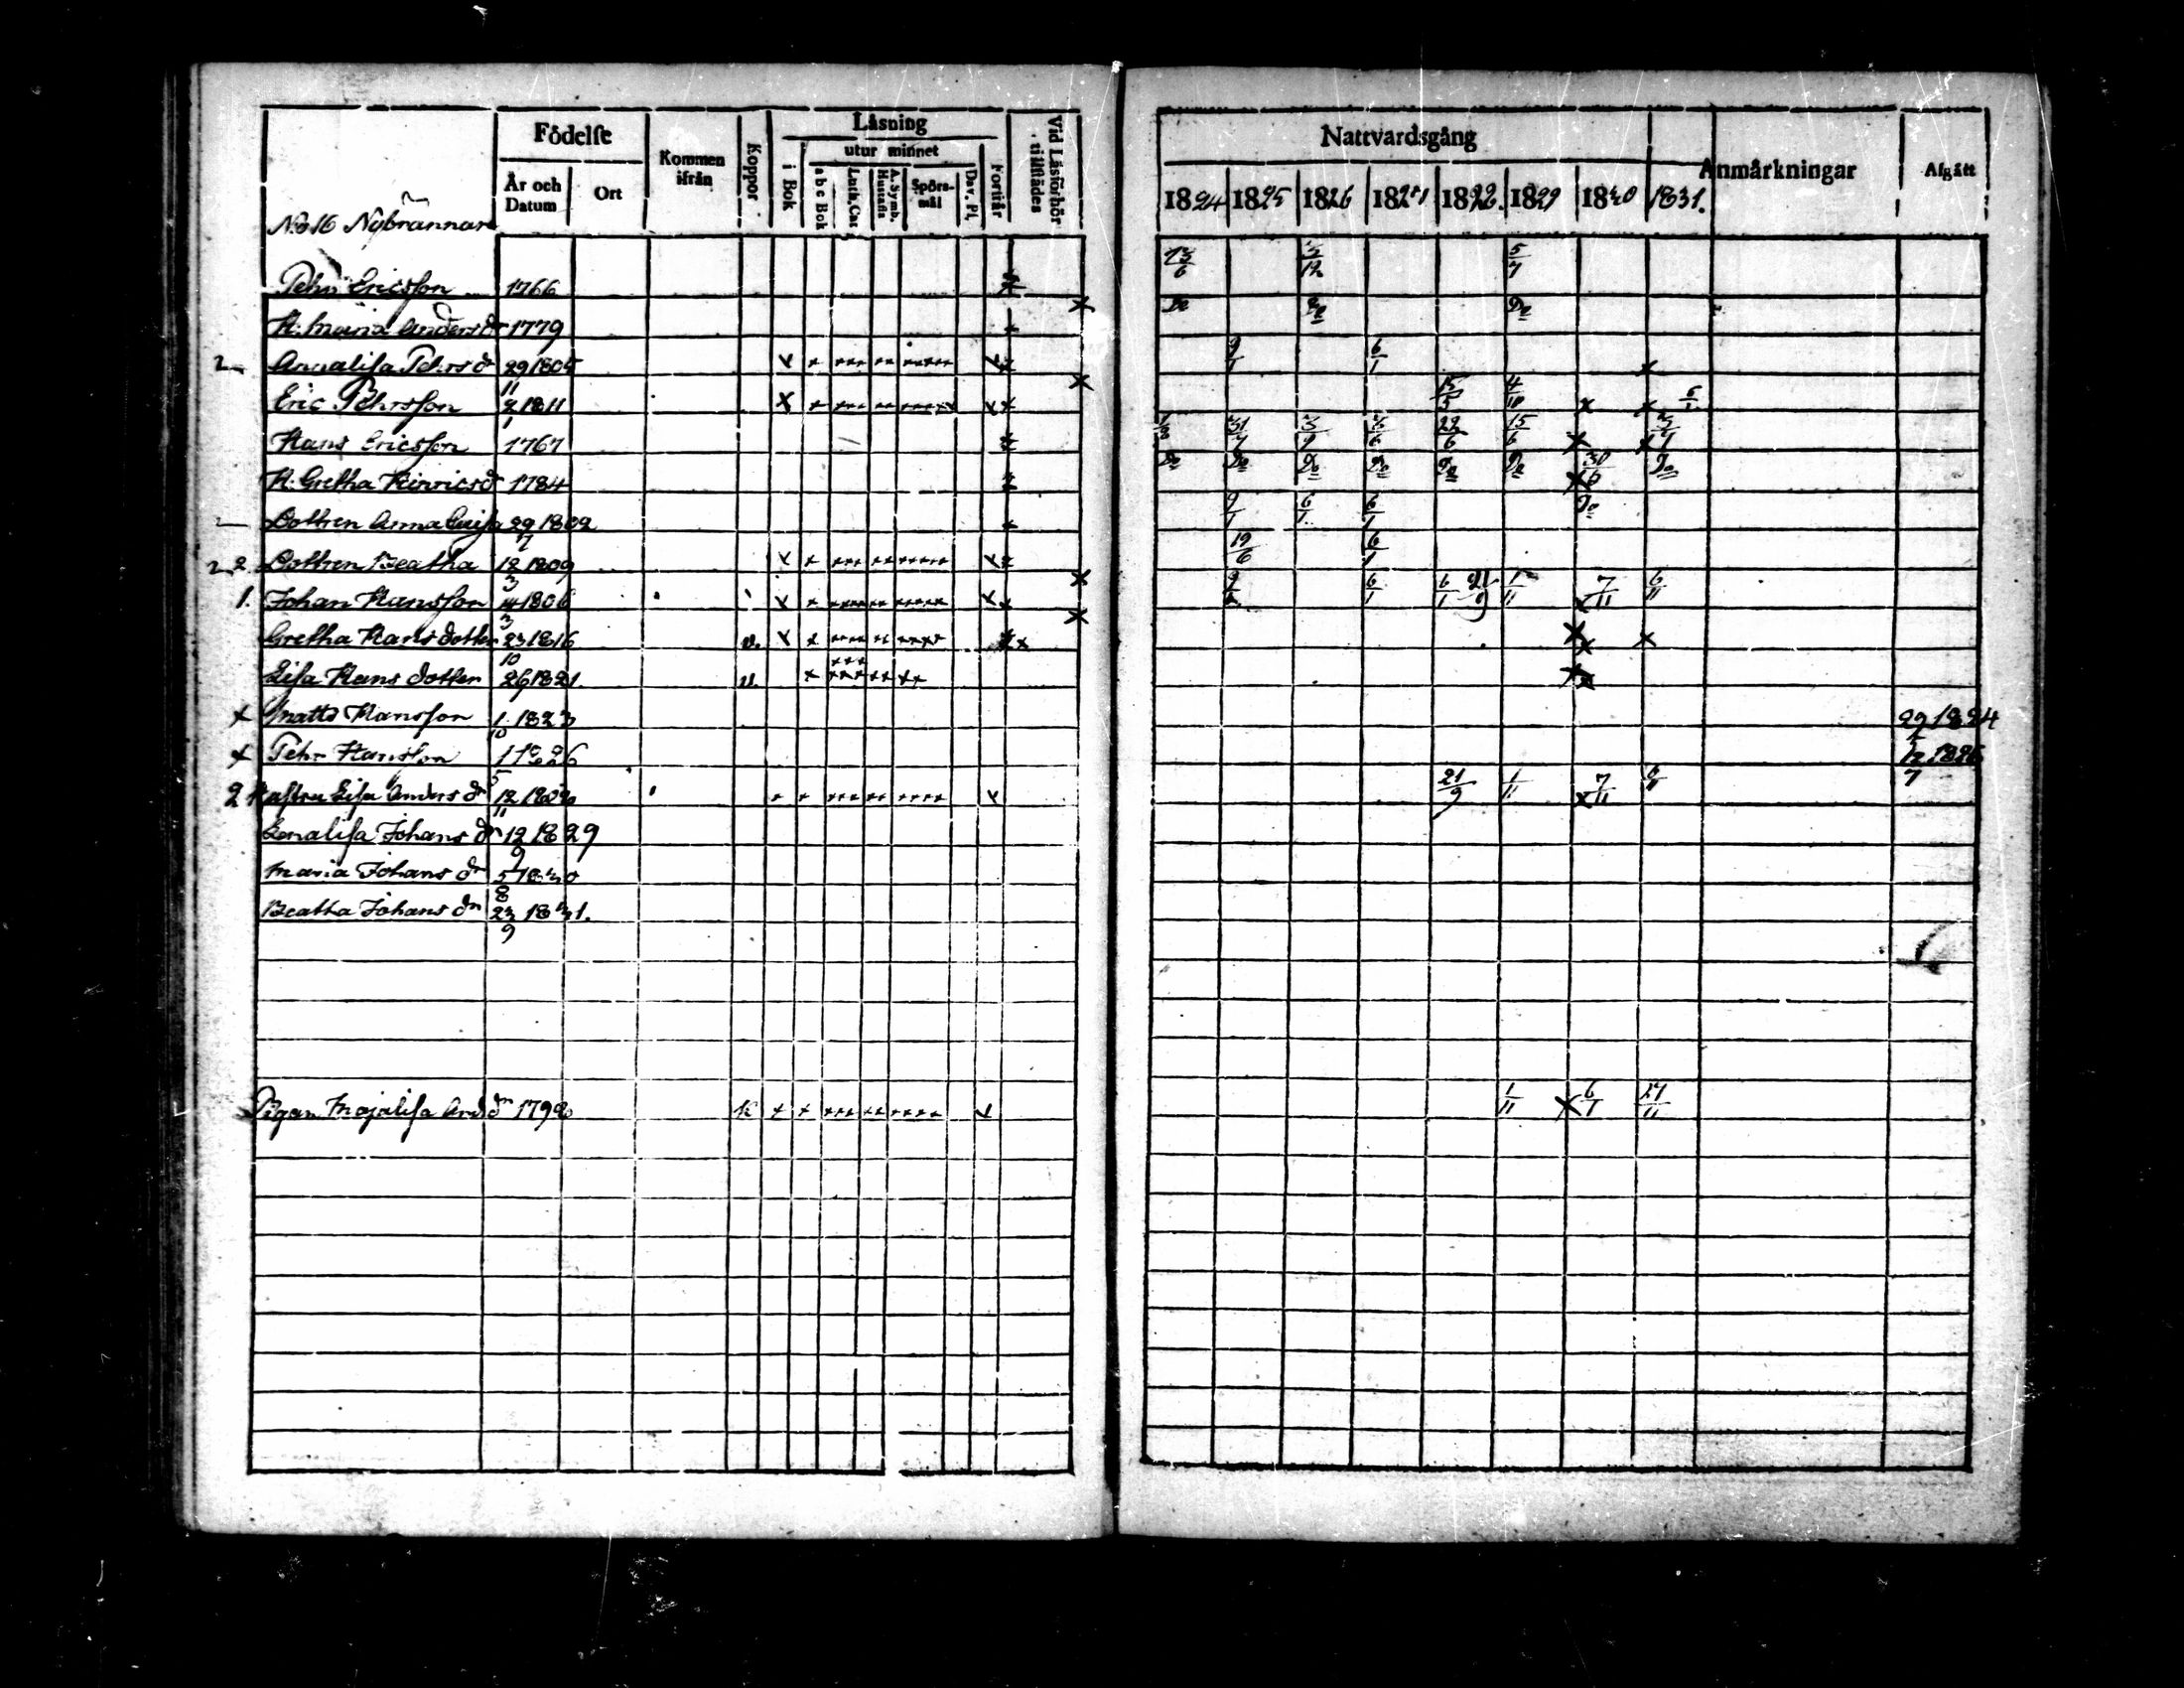 Födelse
Kommen ifrån
Koppor
Läsning
utur minnet
i Bok
abc Bok
Luth. Cat.
A. Symb. Hustafla
Spörsmål
Dav. Ps.
Förstår
Vid Läsförhör tillstädes
År och Datum
Ort
N:o 16 Nybrännars
Pehr Ericsson 1766
H. Maria Andersdr 1779
2 Annalisa Pehrsdr 29/11 1805
Eric Pehrsson 2/1 1811
Hans Ericsson 1767
H. Gretha Hinricsdr 1784
Dottren Anna Luisa 29/7 1802
2 2 Dottren Beatha 12/3 1809
1. Johan Hansson 14/3 1806
Gretha Hans dotter 23/10 1816 v.
Lisa Hans dotter 26/9 1821. v
x Matts Hansson 1/10 1823
x Pehr Hansson 1/5 1826
2 Hustru Lisa Anders dr 12/11 1802
Lenalisa Johans dr 12/9 1829
Maria Johans dr 5/8 1830
Beatha Johans dr 23/9 1831.
Pigan Majalisa And.dr 1792 k
Nattvardsgång
Anmärkningar
Afgått
1824 1825 1826 1827 1828. 1829 1830 1831.
23/6 3/12 5/7
Do Do Do
9/1 6/1 x
15/5 4/10 x x 6/1
31/7 3/9 3/6 22/6 15/6 x x 3/7
Do Do Do Do Do Do x 30/6 Do
9/1 6/1 6/1 Do
19/6 6/1
9/2 6/1 6/1 21/9 1/11 x 7/11 6/11
x x x
x x
29 1824
12/7 1826
21/9 1/11 x 7/11 6/11
1/11 x 6/1 27/11